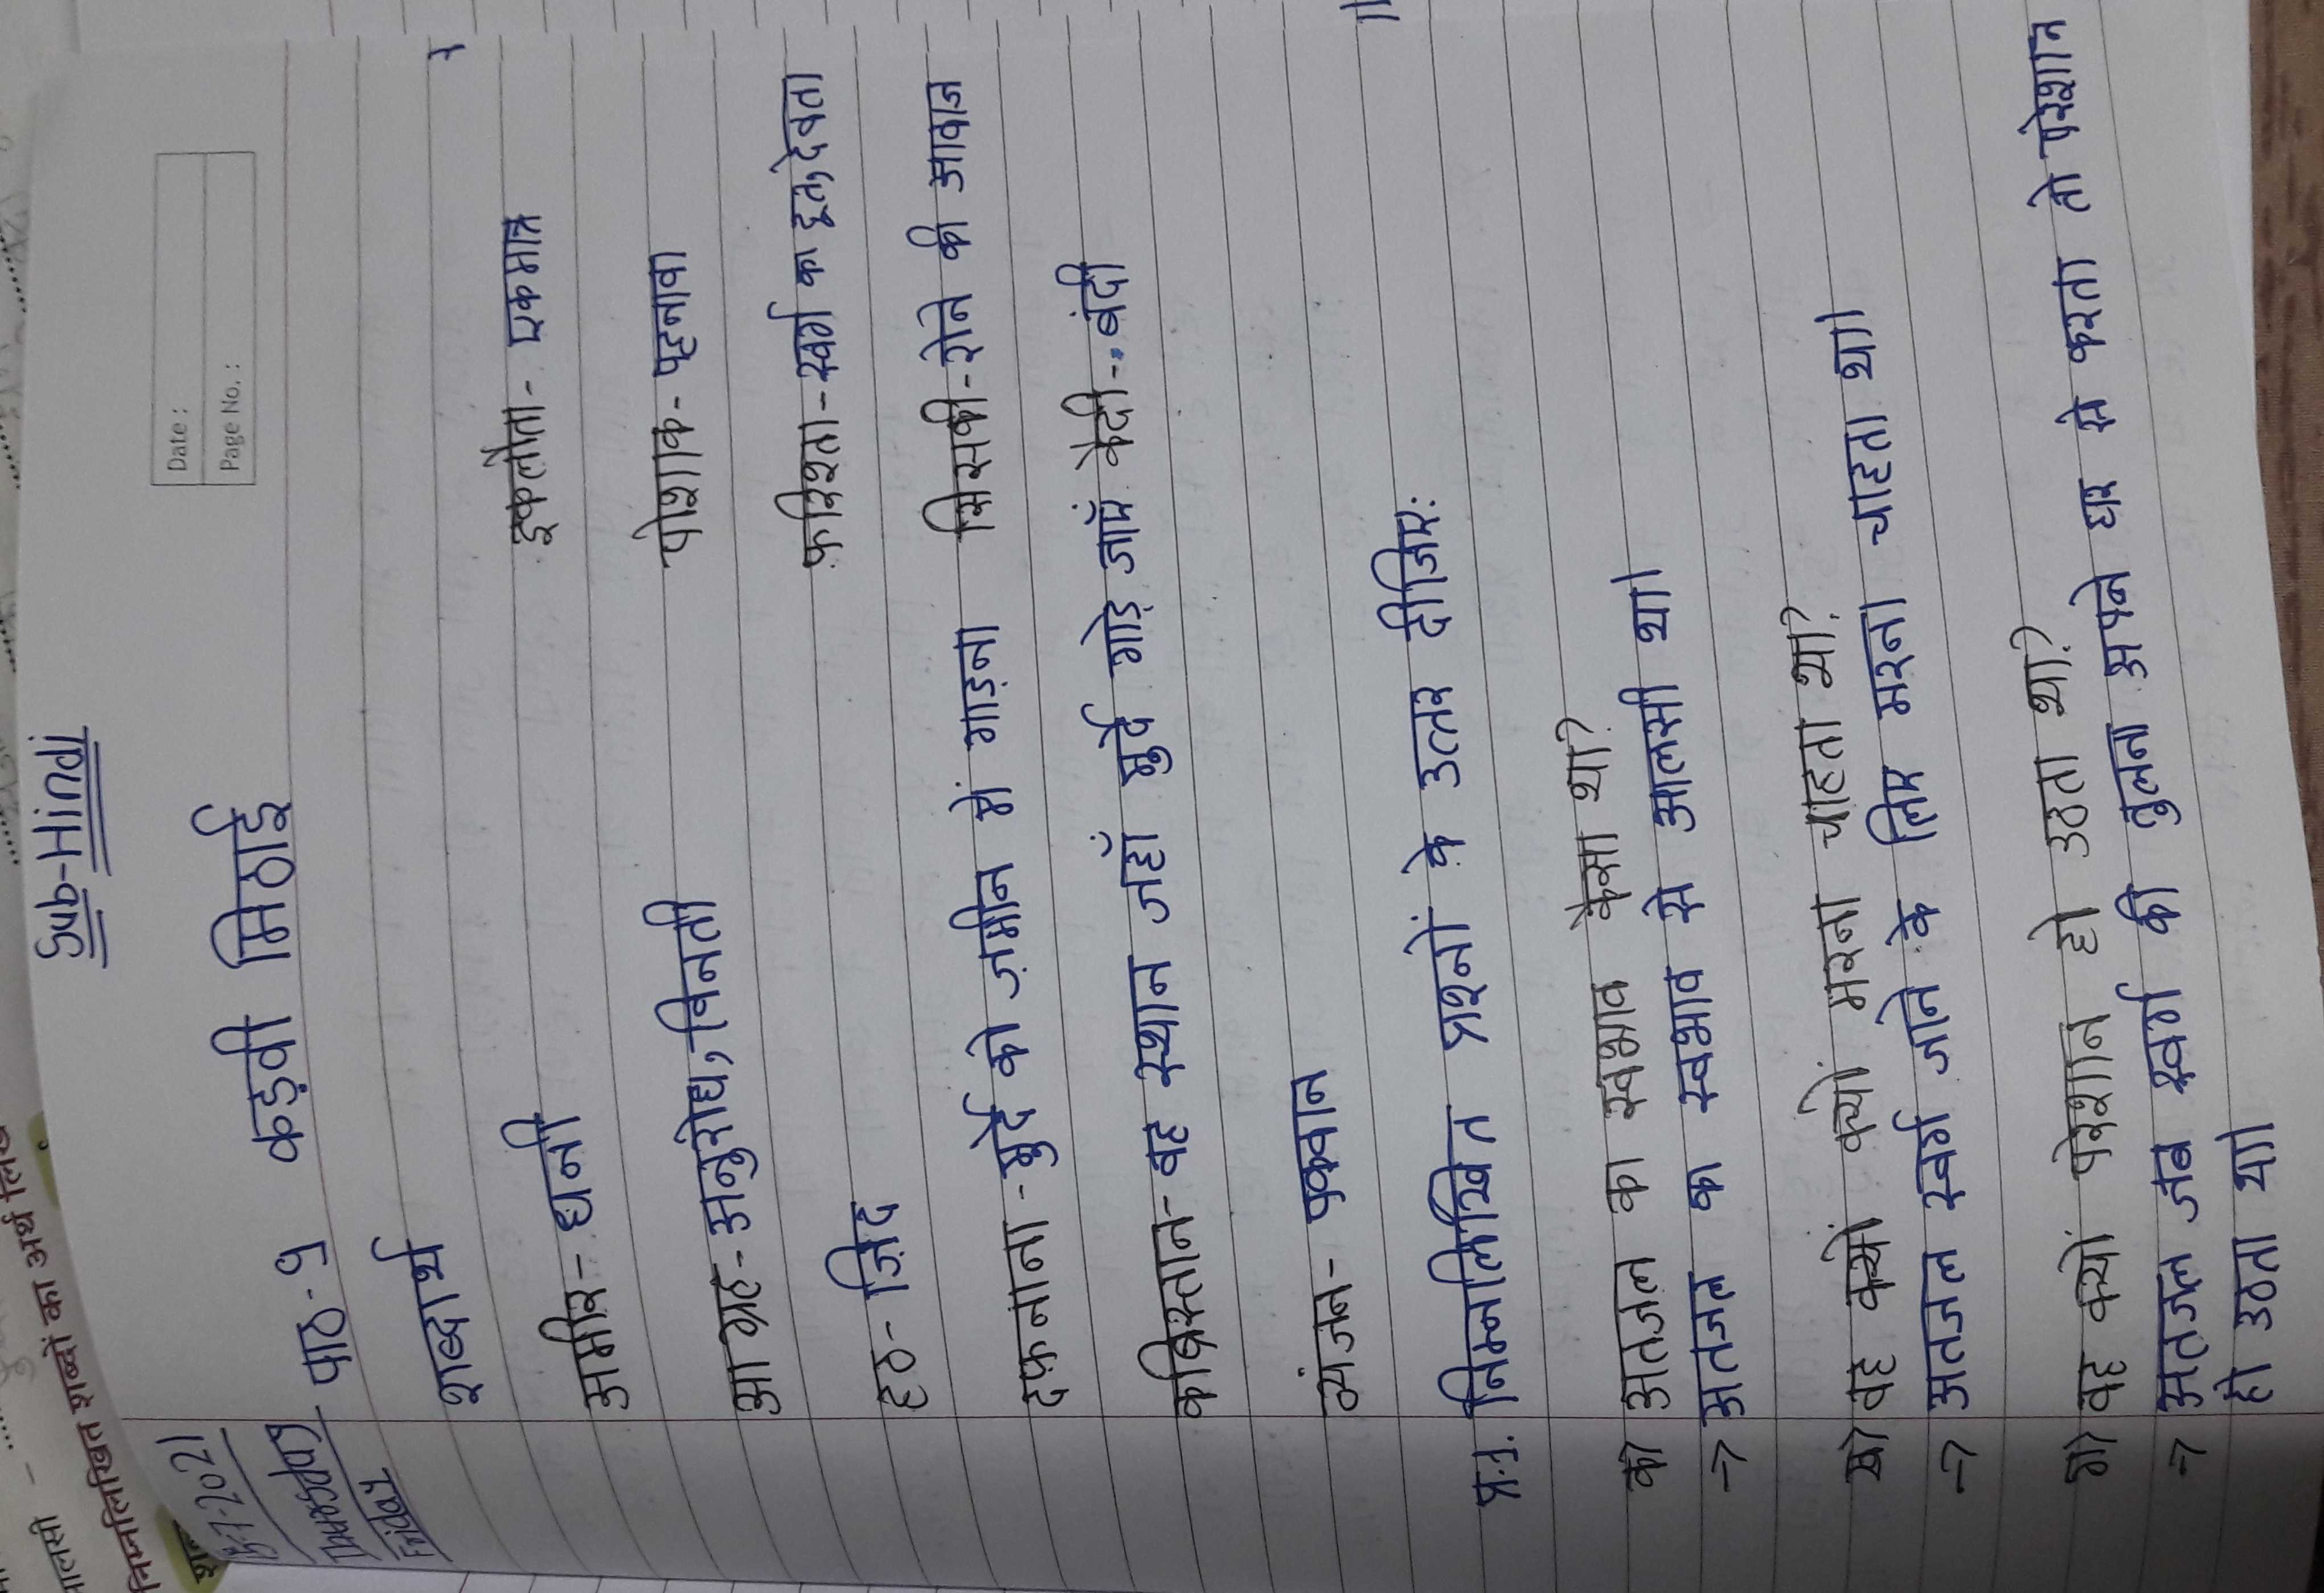 Sub-Hindi
Date :
Page No. :
2021
Thursday
Friday
पाठ-9 कड़वी मिठाई
शब्दार्थ
अमीर- धनी इकलौता- एकमात्र
आग्रह- अनुरोध, विनती पोशाक- पहनावा
हठ- ज़िद फ़रिश्ता- स्वर्ग का दूत, देवता
दफ़नाना- मुर्दे को ज़मीन में गाड़ना सिसकी- रोने की आवाज
कब्रिस्तान- वह स्थान जहाँ मुर्दे गाड़े जाएँ कैदी- बंदी
व्यंजन- पकवान
प्र.1. निम्नलिखित प्रश्नों के उत्तर दीजिए:
क) अतजल का स्वभाव कैसा था?
→ अतजल का स्वभाव से आलसी था।
ख) वह क्यों क्यों मरना चाहता था?
→ अतजल स्वर्ग जाने के लिए मरना चाहता था।
ग) वह क्यों परेशान हो उठता था?
→ अतजल जब स्वर्ग की तुलना अपने घर से करता तो परेशान
हो उठता था।
आलसी -
निम्नलिखित शब्दों का अर्थ लिख